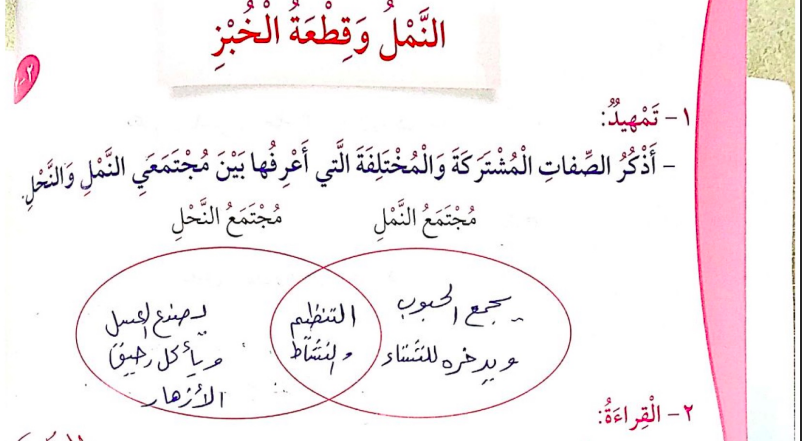 النَّمْلُ وَقِطْعَةُ الْخُبْزِ
٢-٢
١ - تَمْهِيدٌ:
- أَذْكُرُ الصِّفاتِ الْمُشْتَرَكَةَ وَالْمُخْتَلِفَةَ الَّتي أَعْرِفُها بَيْنَ مُجْتَمَعَيِ النَّمْلِ وَالنَّحْلِ.
مُجْتَمَعُ النَّمْلِ
مُجْتَمَعُ النَّحْلِ
يجمع الحبوب
ويدخره للشتاء
التنظيم
والنشاط
يصنع العسل
ويأكل رحيق
الأزهار
٢ - الْقِراءَةُ: